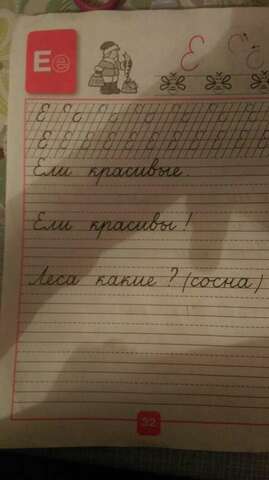 Ее Е Ее
Е Ее Е Е Е Е Е Е Е
Е Е Е Е Е Е Е Е Е
Ели красивые.
Ели красивы!
Леса какие? (сосна)
32